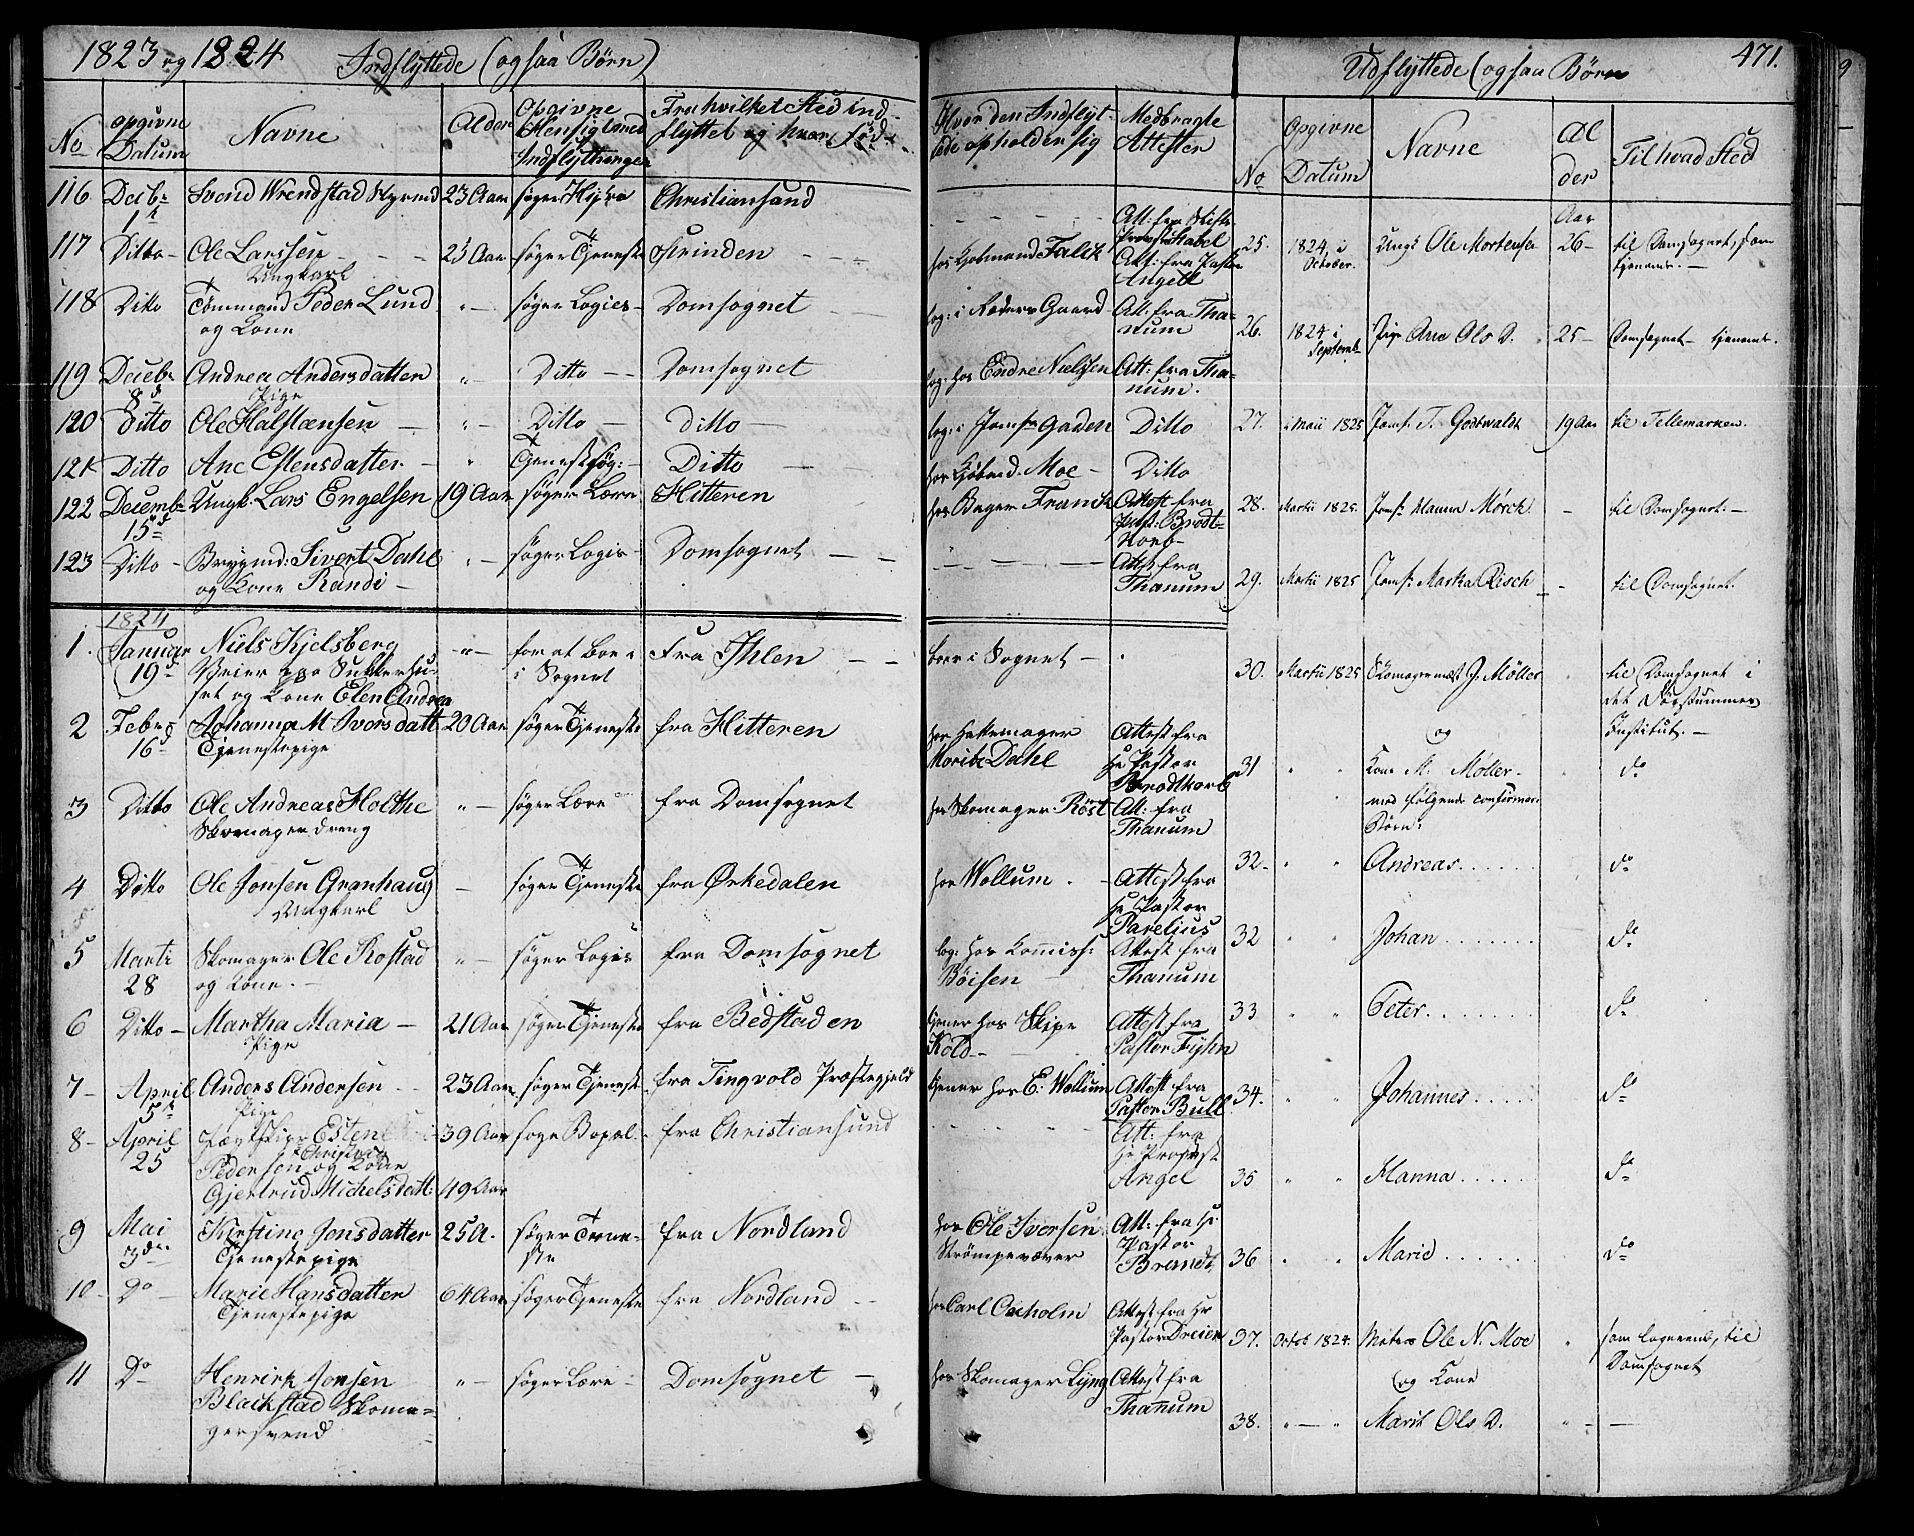 1823 og 1824 Indflyttede (ogsaa Børn)
No
opgivne Datum
Navne
Alder
Opgivne Hensigt med Indflytningen
Fra hvilket Sted indflyttet og hvor Fød
Hvor den Indflyttede opholder sig
Medbragte Attester
116 Decbr 1st Svend Wrendstad 23 Aar søger Hyre Christiansand Att: fra Stifts Provst Kabel
117 Ditto Ole Larssen Ungkarl 25 Aar søger Tjeneste Strinden hos Kjøbmand Falck Att: fra Pastor Angell
118 Ditto Tømmermand Peder Lund og Kone søger Logies Domsognet log: i Gaard Att: fra Thanum
119 Decbr 8d Andrea Andersdatter Pige Ditto Domsognet log: hos Endre Nielssen Att: fra Thanum.
120 Ditto Ole Halstensen Ditto ditto log: i Jomfr Gaden Ditto
121 Ditto Ane Estensdatter Tjenestsøg: Ditto hos Kjøbmd. Moe Ditto
122 Decembr 15d Ungk: Lars Engelsen 19 Aar søger Lære Hitteren hos Bager Franck Attest fra Past: Brodtkorb
123 Ditto Brygmd: Sivert Dahl og Kone Randi søger Logis Domsognet Attst fra Thanum
1824
1. Januar 19d Niels Kjelsberg Veier paa Sukkerhuset og Kone Elen Andrea for at boe i Sognet Fra Ihlen boer i Sognet
2 Febr 16d Johanna M Iversdatt Tjenestepige 20 Aar søger Tjeneste fra Hitteren hos Hattemager Morits Dahl Attest fra Hr Pastor Brodtkorb
3 Ditto Ole Andreas Holthe Skomager dreng søger Lære fra Domsognet hos Skomager Röst Att: fra Thanum
4 Ditto Ole Jonsen Granhaug Ungkarl søger Tjeneste fra Ørkedalen hos Wollum Attest fra Hr Pastor Parelius
5 Marti 28 Skomager Ole Rostad og Kone. søger Logis fra Domsognet log: hos Komiss: Böisen Attest fra Thanum
6 Ditto Martha Maria Pige 21 Aar søger Tjeneste fra Bedstaden tjener hos Skipr Kold Attest fra Pastor Fyhn
7 April 5t Anders Andersen 23 Aar søger Tjeneste fra Tingvold Præstegjeld tjener hos E: Wollum Attest fra Pastor Bull
8 April 25 Esten Pedersen og Kone Gjertrud Michelsdatt: 39 Aar 49 Aar søge Bopæl fra Christiansund Att: fra Hr Provst Angel
9 Mai 3die Kirstine Jonsdatter Tjenestepige 25 A. søger Tjeneste fra Nordland hos Ole Iversen Strømpevæver Att: fra Hr Pastor Brandt
10 Do Marie Hansdatter Tjenestepige 64 Aar søger Tjeneste fra Nordland hos Carl Caxholm Attest fra Hr Pastor Dreier
11 Do Henrirk Jonsen Blackstad Skomagersvend søger Lære Domsognet hos Skomager Lyng Attest fra Thanum
Udflyttede (ogsaa Børn
471.
No
Opgivne Datum
Navne
Alder
Til hvad Sted
Aar
25. 1824 i October. Ungk Ole Mortensen 26 til Domsognet, som tjenende.
26. 1824 i Septemb Pige Ane Ols D. 25 Domsognet tjenende.
27. i Maii 1825 Jomf. T. Godtwaldt 19 Aar til Tellemarken.
28. Martii 1825. Jomf. Hanna Mørch til Domsognet.
29. Martii 1825 Jomf. Marka Risch til Domsognet.
30. Martii 1825 Skomagermest J. Møller til Domsognet i det Døvstummes Institut.
og
31 Kone M. Møller. do
med følgende confirmer: Børn:
32. Andreas do
32 Johan do
33 Peter do
34. Johannes do
35 Hanna do
36 Marie do
37. Octob 1824. Ole N. Moe som logerende, til Domsognet
og Kone
38. Marit Ols D.